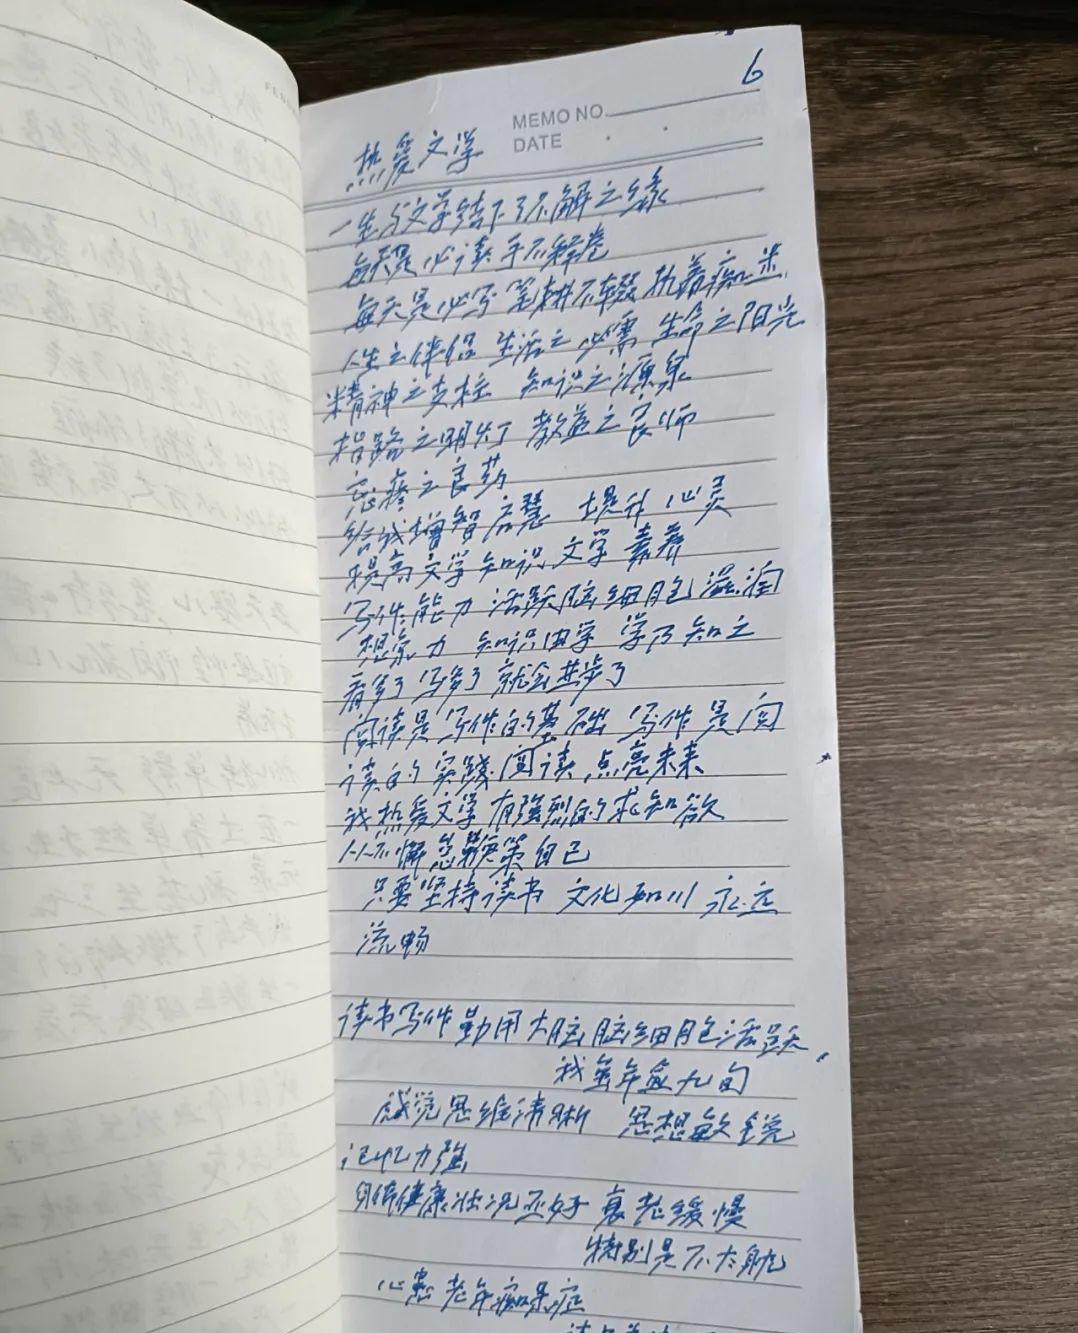 6
MEMO NO.
DATE
热爱文学
一生与文学结下了不解之缘
每天是必读 手不释卷
每天是必写 笔耕不辍 执着痴迷
人生之伴侣 生活之必需 生命之阳光
精神之支柱 知识之源泉
指路之明灯 教益之良师
之良药
给我增智启慧 提升心灵
提高文学知识 文学素养
写作能力 活跃脑细胞 滋润
想象力 知识由学 学乃知之
看多了 写多了 就会进步了
阅读是写作的基础 写作是阅
读的实践 阅读 点亮未来
我热爱文学 有强烈的求知欲
从不懈怠 鞭策自己
只要坚持读书 文化如川 永远
流畅
读书写作勤用大脑 脑细胞活跃
我虽年愈九旬
感觉思维清晰 思想敏锐
记忆力强
身体健康壮况还好 衰老缓慢
特别是不太
心患老年痴呆症